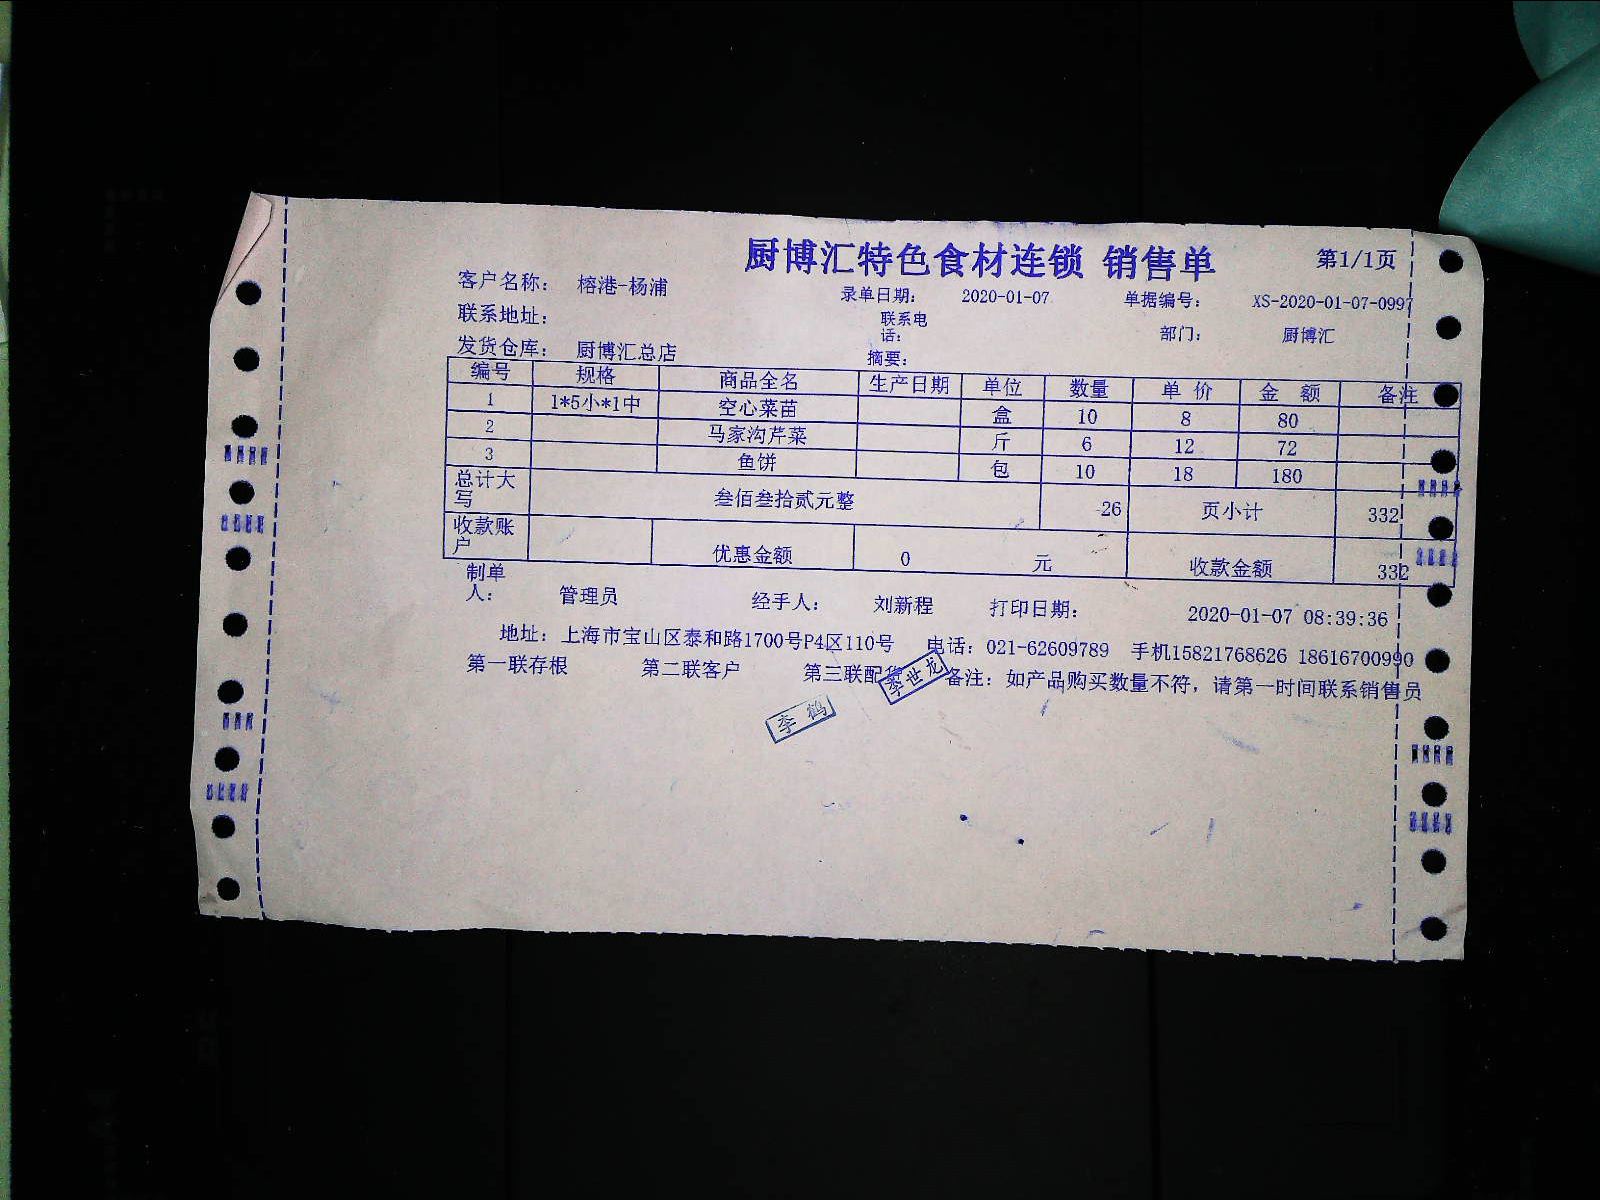 厨博汇特色食材连锁 销售单 第1/1页
客户名称: 榕港-杨浦 录单日期: 2020-01-07 单据编号: XS-2020-01-07-0997
联系地址: 联系电话: 部门: 厨博汇
发货仓库: 厨博汇总店 摘要:
编号 规格 商品全名 生产日期 单位 数量 单 价 金 额 备注
1 1*5小*1中 空心菜苗 盒 10 8 80
2 马家沟芹菜 斤 6 12 72
3 鱼饼 包 10 18 180
总计大写 叁佰叁拾贰元整 26 页小计 332
收款账户 优惠金额 0 元 收款金额 332
制单人: 管理员 经手人: 刘新程 打印日期: 2020-01-07 08:39:36
地址: 上海市宝山区泰和路1700号P4区110号 电话: 021-62609789 手机15821768626 18616700990
第一联存根 第二联客户 第三联配货 备注: 如产品购买数量不符, 请第一时间联系销售员
李世龙
李 鹤